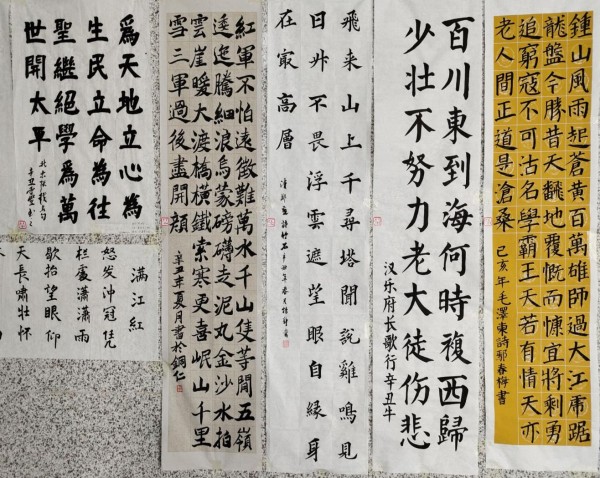 鍾山風雨起蒼黃百萬雄師過大江虎踞
龍盤今勝昔天翻地覆慨而慷宜將剩勇
追窮寇不可沽名學霸王天若有情天亦
老人間正道是滄桑
己亥年毛澤東詩邢春梅書
百川東到海何時複西歸
少壯不努力老大徒伤悲
汉乐府长歌行辛丑牛
飛来山上千尋塔聞說雞鳴見
日升不畏浮雲遮望眼自緣身
在冣高層
紅軍不怕遠徵難萬水千山隻等閒五嶺
逶迤騰細浪烏蒙磅礴走泥丸金沙水拍
雲崖暖大渡橋橫鐵索寒更喜岷山千里
雪三軍過後盡開顏
辛丑年夏月書於銅仁
爲天地立心為
生民立命為往
聖繼絕學爲萬
世開太平
北宋张载句
满江红
怒发冲冠凭
栏處潇潇雨
歇抬望眼仰
天長嘯壮怀